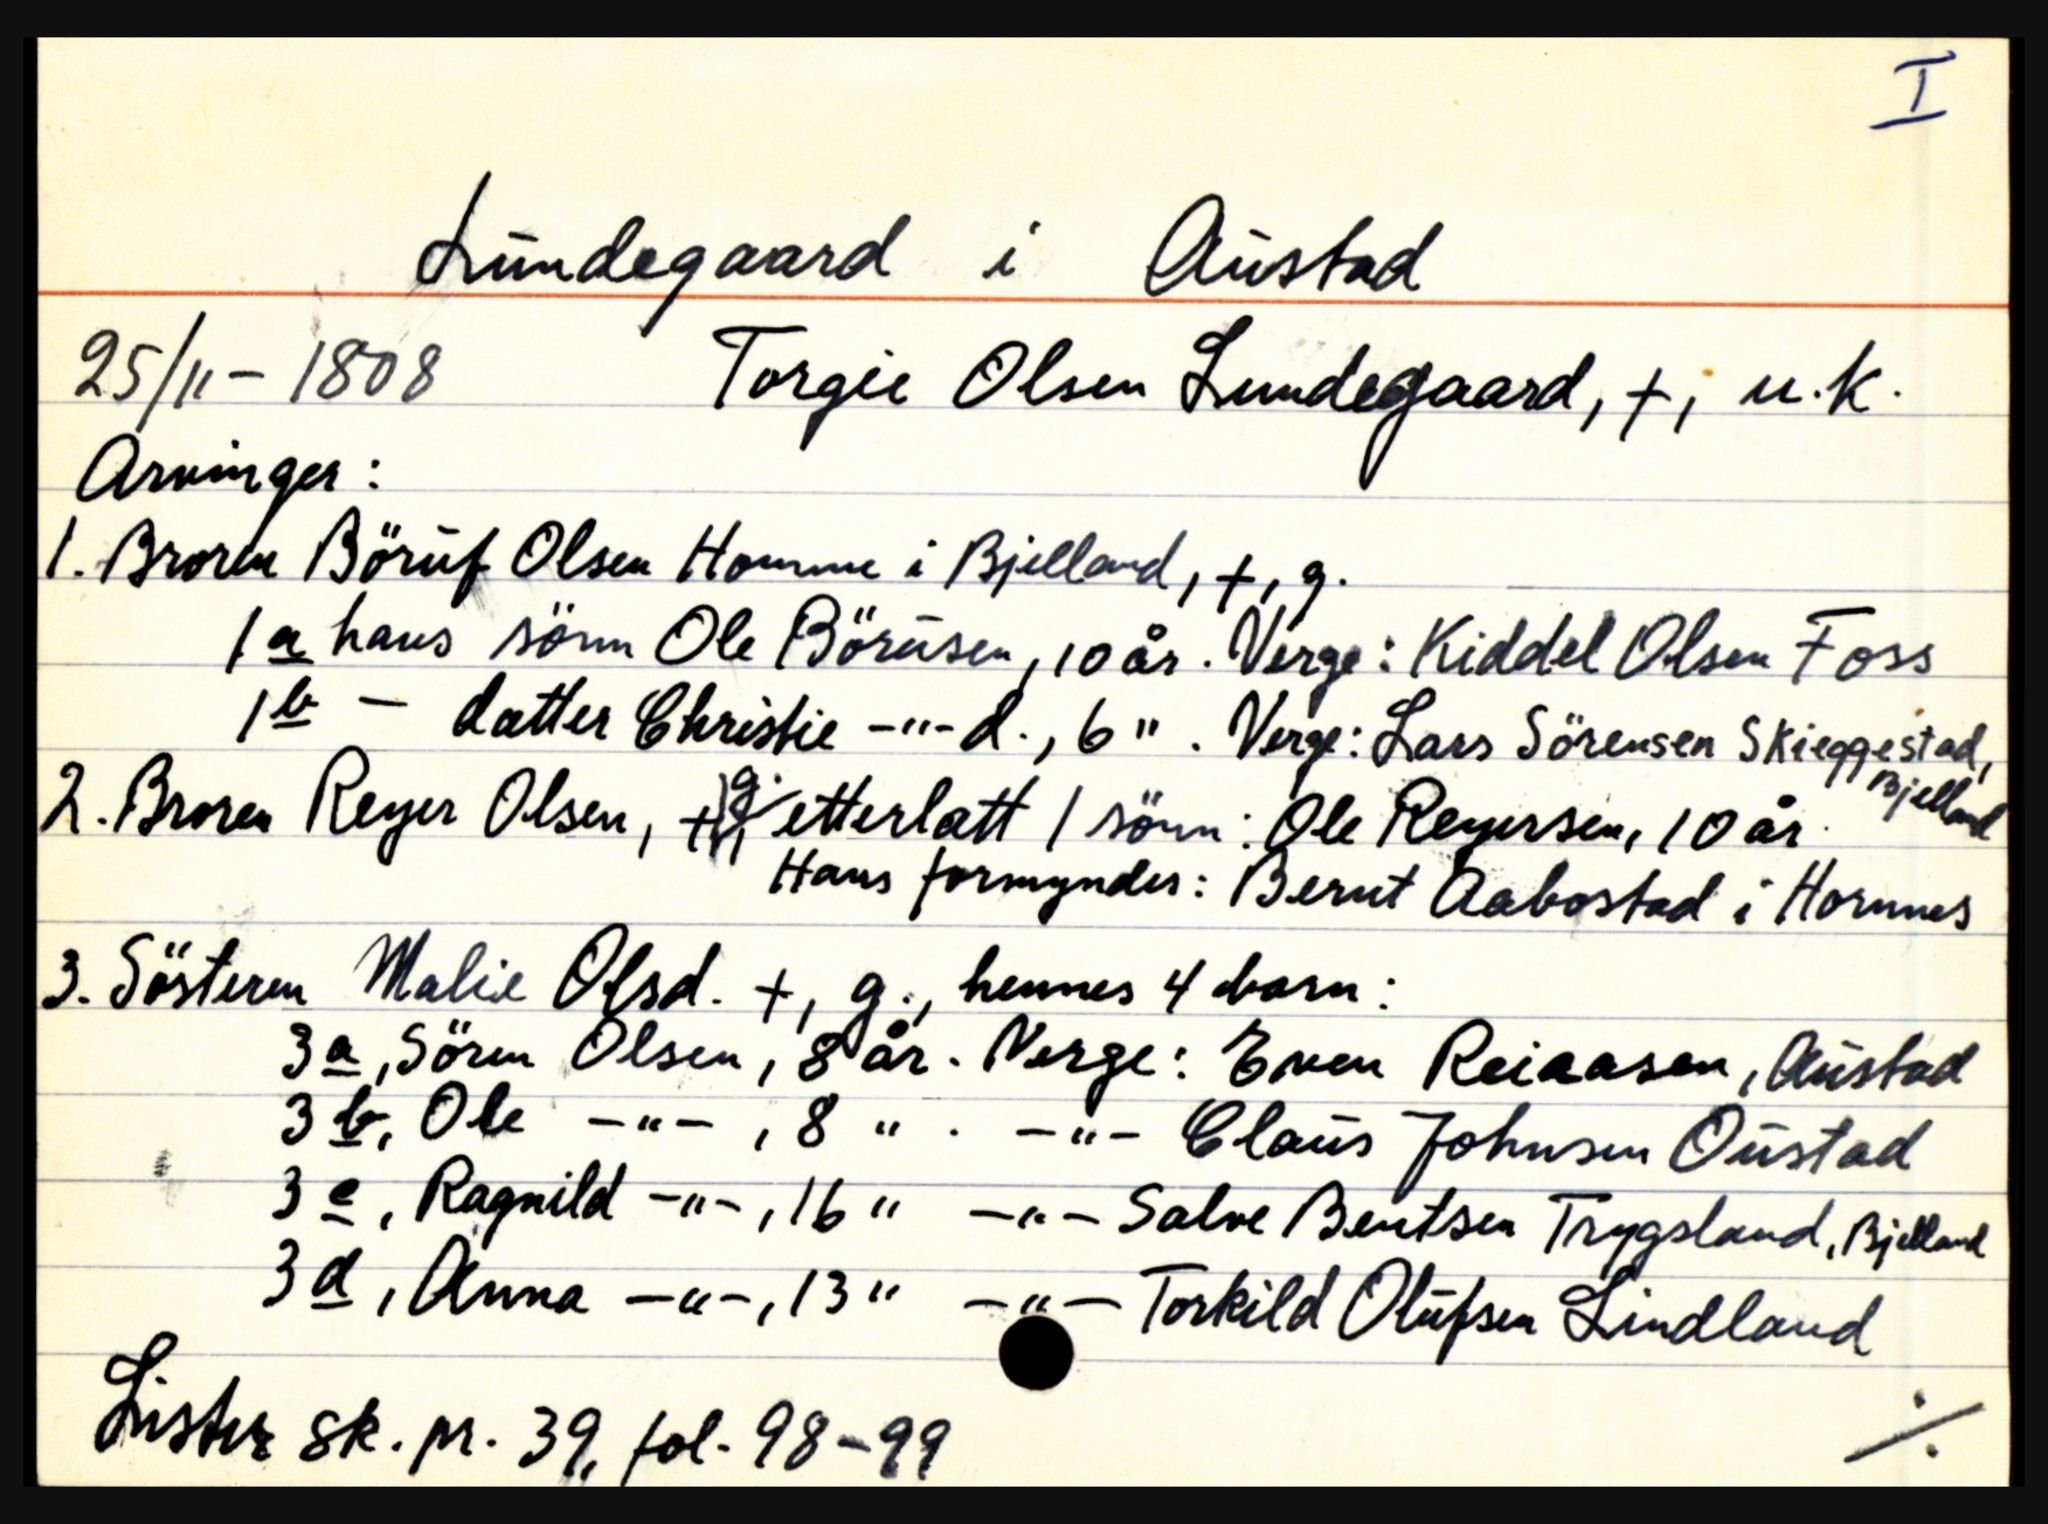 I
Lundegaard i Austad
25/11 - 1808 Torgie Olsen Lundegaard, +, u.k.
Arvinger:
1. Broren Böruf Olsen Homme i Bjelland, +, g.
1a hans sönn Ole Börusen, 10 år. Verge: Kiddel Olsen Foss
1b - datter Christie -"- d., 6 ". Verge: Lars Sörensen Skieggestad, Bjelland
2. Broren Reyer Olsen, +, g. etterlatt 1 sönn: Ole Reyersen, 10 år.
Hans formynder: Bernt Aabostad i Hornnes
3. Sösteren Malie Olsd. +, g., hennes 4 barn:
3a, Sören Olsen, 8 år. Verge: Even Reiaasen, Austad
3b, Ole -"-, 8 ". -"- Claus Johnsen Oustad
3c, Ragnild -"-, 16 " -"- Salve Bentsen Trygsland, Bjelland
3d, Anna -"-, 13 " -"- Torkild Olufsen Lindland
Lister sk. pr. 39, fol. 98-99
./.